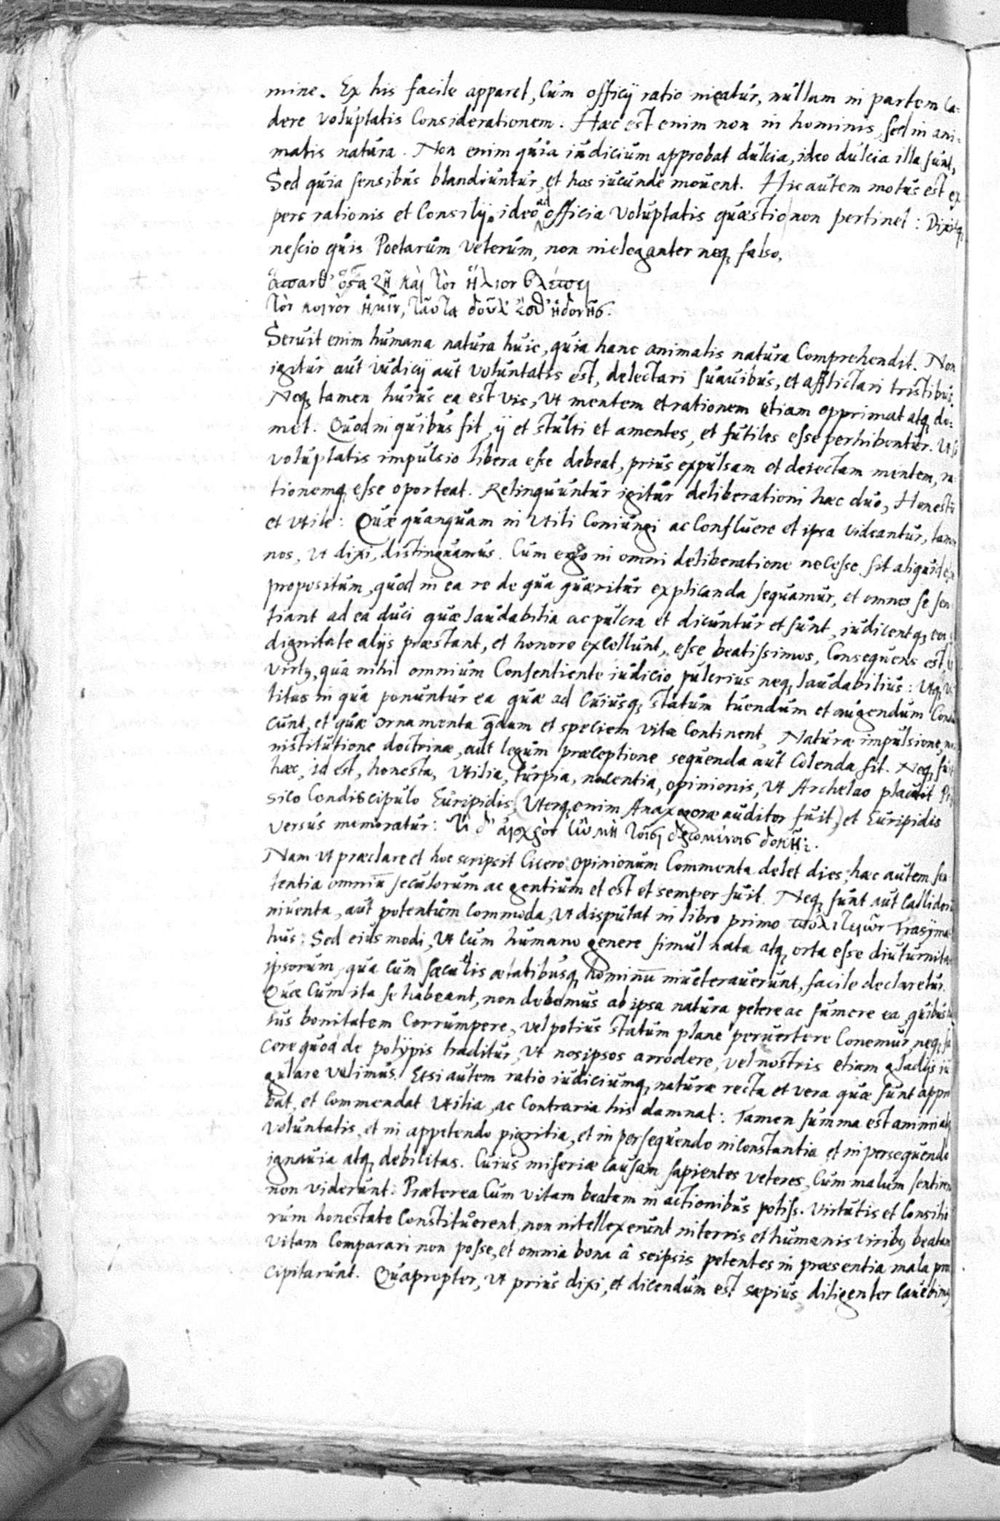 mine. Ex his facile apparet, Cum officij ratio ineatur, nullam in partem Ca-
dere voluptatis Considerationem. Haec est enim non in hominis, sed in ani-
matis natura. Non enim quia iudicium approbat dulcia, ideo dulcia illa sunt,
Sed quia sensibus blandiuntur, et hos iucunde mouent. Hic autem motus est ex
pers rationis et Consilij. ideo ad officia voluptatis quaestio non pertinet: Dixitq,
nescio quis Poetarum veterum, non ineleganter neq, falso,
ἅπανθ᾽ ὅσα ζῇ καὶ τὸν ἥλιον βλέπει
τὸν κοινὸν ἡμῖν, ταῦτα δοῦλ᾽ ἔσθ᾽ ἡδονῆς.
Seruit enim humana natura huic, quia hanc animalis natura Comprehendit. Non
igitur aut iudicij aut voluntatis est, delectari suauibus, et afflictari tristibus,
Neq, tamen huius ea est vis, Vt mentem et rationem etiam opprimat atq, do-
met. Quod in quibus fit, ij et stulti et amentes, et futiles esse perhibentur. Vt si
voluptatis impulsio libera esse debeat, prius expulsam et deiectam mentem, ra
tionemq, esse oporteat. Relinquuntur igitur deliberationi haec duo, Honestu
et Vtile: Quae quanquam in Vtili Coniungi ac Confluere et ipsa videantur, tamen
nos, Vt dixi, distinguamus. Cum ergo in omni deliberatione necesse sit aliquid ex
propositum, quod in ea re de qua quaeritur explicanda sequamur, et omnes se sen
tiant ad ea duci quae laudabilia ac pulcra et dicuntur et sunt, iudicentq, eos
dignitate alijs praestant, et honore excellunt, esse beatissimos, Consequens est,
Virt9, qua nihil omnium Consentiente iudicio pulcrius neq, laudabilius: Vtq, Vti
litas in qua ponuntur ea quae ad Cuiusq, statum tuendum et augendum Condu
cunt, et quae ornamenta quaedam et speciem vitae Continent, Naturae impulsione,
institutione doctrinae, aut legum praeceptione sequenda aut Colenda sit. Neq, sunt
haec, id est, honesta, Vtilia, turpia, nocentia, opinionis, Vt Archelao placuit
sico Condiscipulo Euripidis, (Vterq, enim Anaxagorae auditor fuit,) et Euripidis
versus memoratur: Τί δ᾽ αἰσχρὸν ἢν μὴ τοῖσι χρωμένοις δοκῇ;
Nam Vt praeclare et hoc scripsit Cicero: opinionum Commenta delet dies, haec autem sen
tentia omniu seculorum ac gentium et est et semper fuit. Neq, sunt aut Callidori
inuenta, aut potentum Commoda, Vt disputat in libro primo πολιτειῶν Trasyma
hus: Sed eius modi, Vt Cum humano genere simul nata atq, orta esse diuturnitas
ipsorum, qua Cum saeculis aetatibusq, hominu inueterauerunt, facile declaretur.
Quae Cum ita se habeant, non debemus ab ipsa natura petere ac sumere ea quibus
ius bonitatem Corrumpere, vel potius statum plane peruertere Conemur, neq, fa
cere quod de polypis traditur, Vt nosipsos arrodere, vel nostris etiam gladijs iu
gulare velimus. Etsi autem ratio iudiciumq, naturae recta et vera quae sunt appro
bat, et Commendat Vtilia, ac Contraria his damnat: Tamen summa est animi atq,
voluntatis, et in appetendo pigritia, et in persequendo inconstantia et in persequendo
ignauia atq, debilitas. Cuius miseriae causam sapientes veteres, Cum malum sentirent
non viderunt: Praeterea Cum vitam beatam in actionibus potiss. Virtutis et Consilio
rum honestate Constituerent, non intellexerunt in terris et humanis virib9 beatam
vitam Comparari non posse, et omnia bona â seipsis petentes in praesentia mala prae
cipitarunt. Quapropter, Vt prius dixi, et dicendum est saepius, diligenter Cauebimus